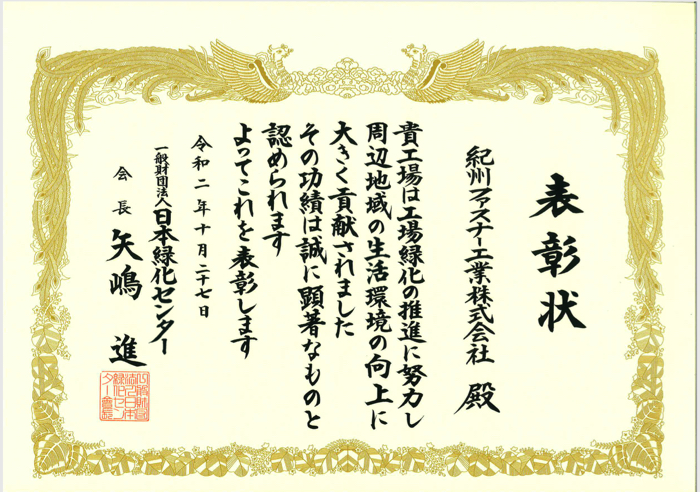 表彰状
紀州ファスナー工業株式会社 殿
貴工場は工場緑化の推進に努力し
周辺地域の生活環境の向上に
大きく貢献されました
その功績は誠に顕著なものと
認められます
よってこれを表彰します
令和二年十月二十七日
一般財団法人日本緑化センター
会長 矢嶋 進